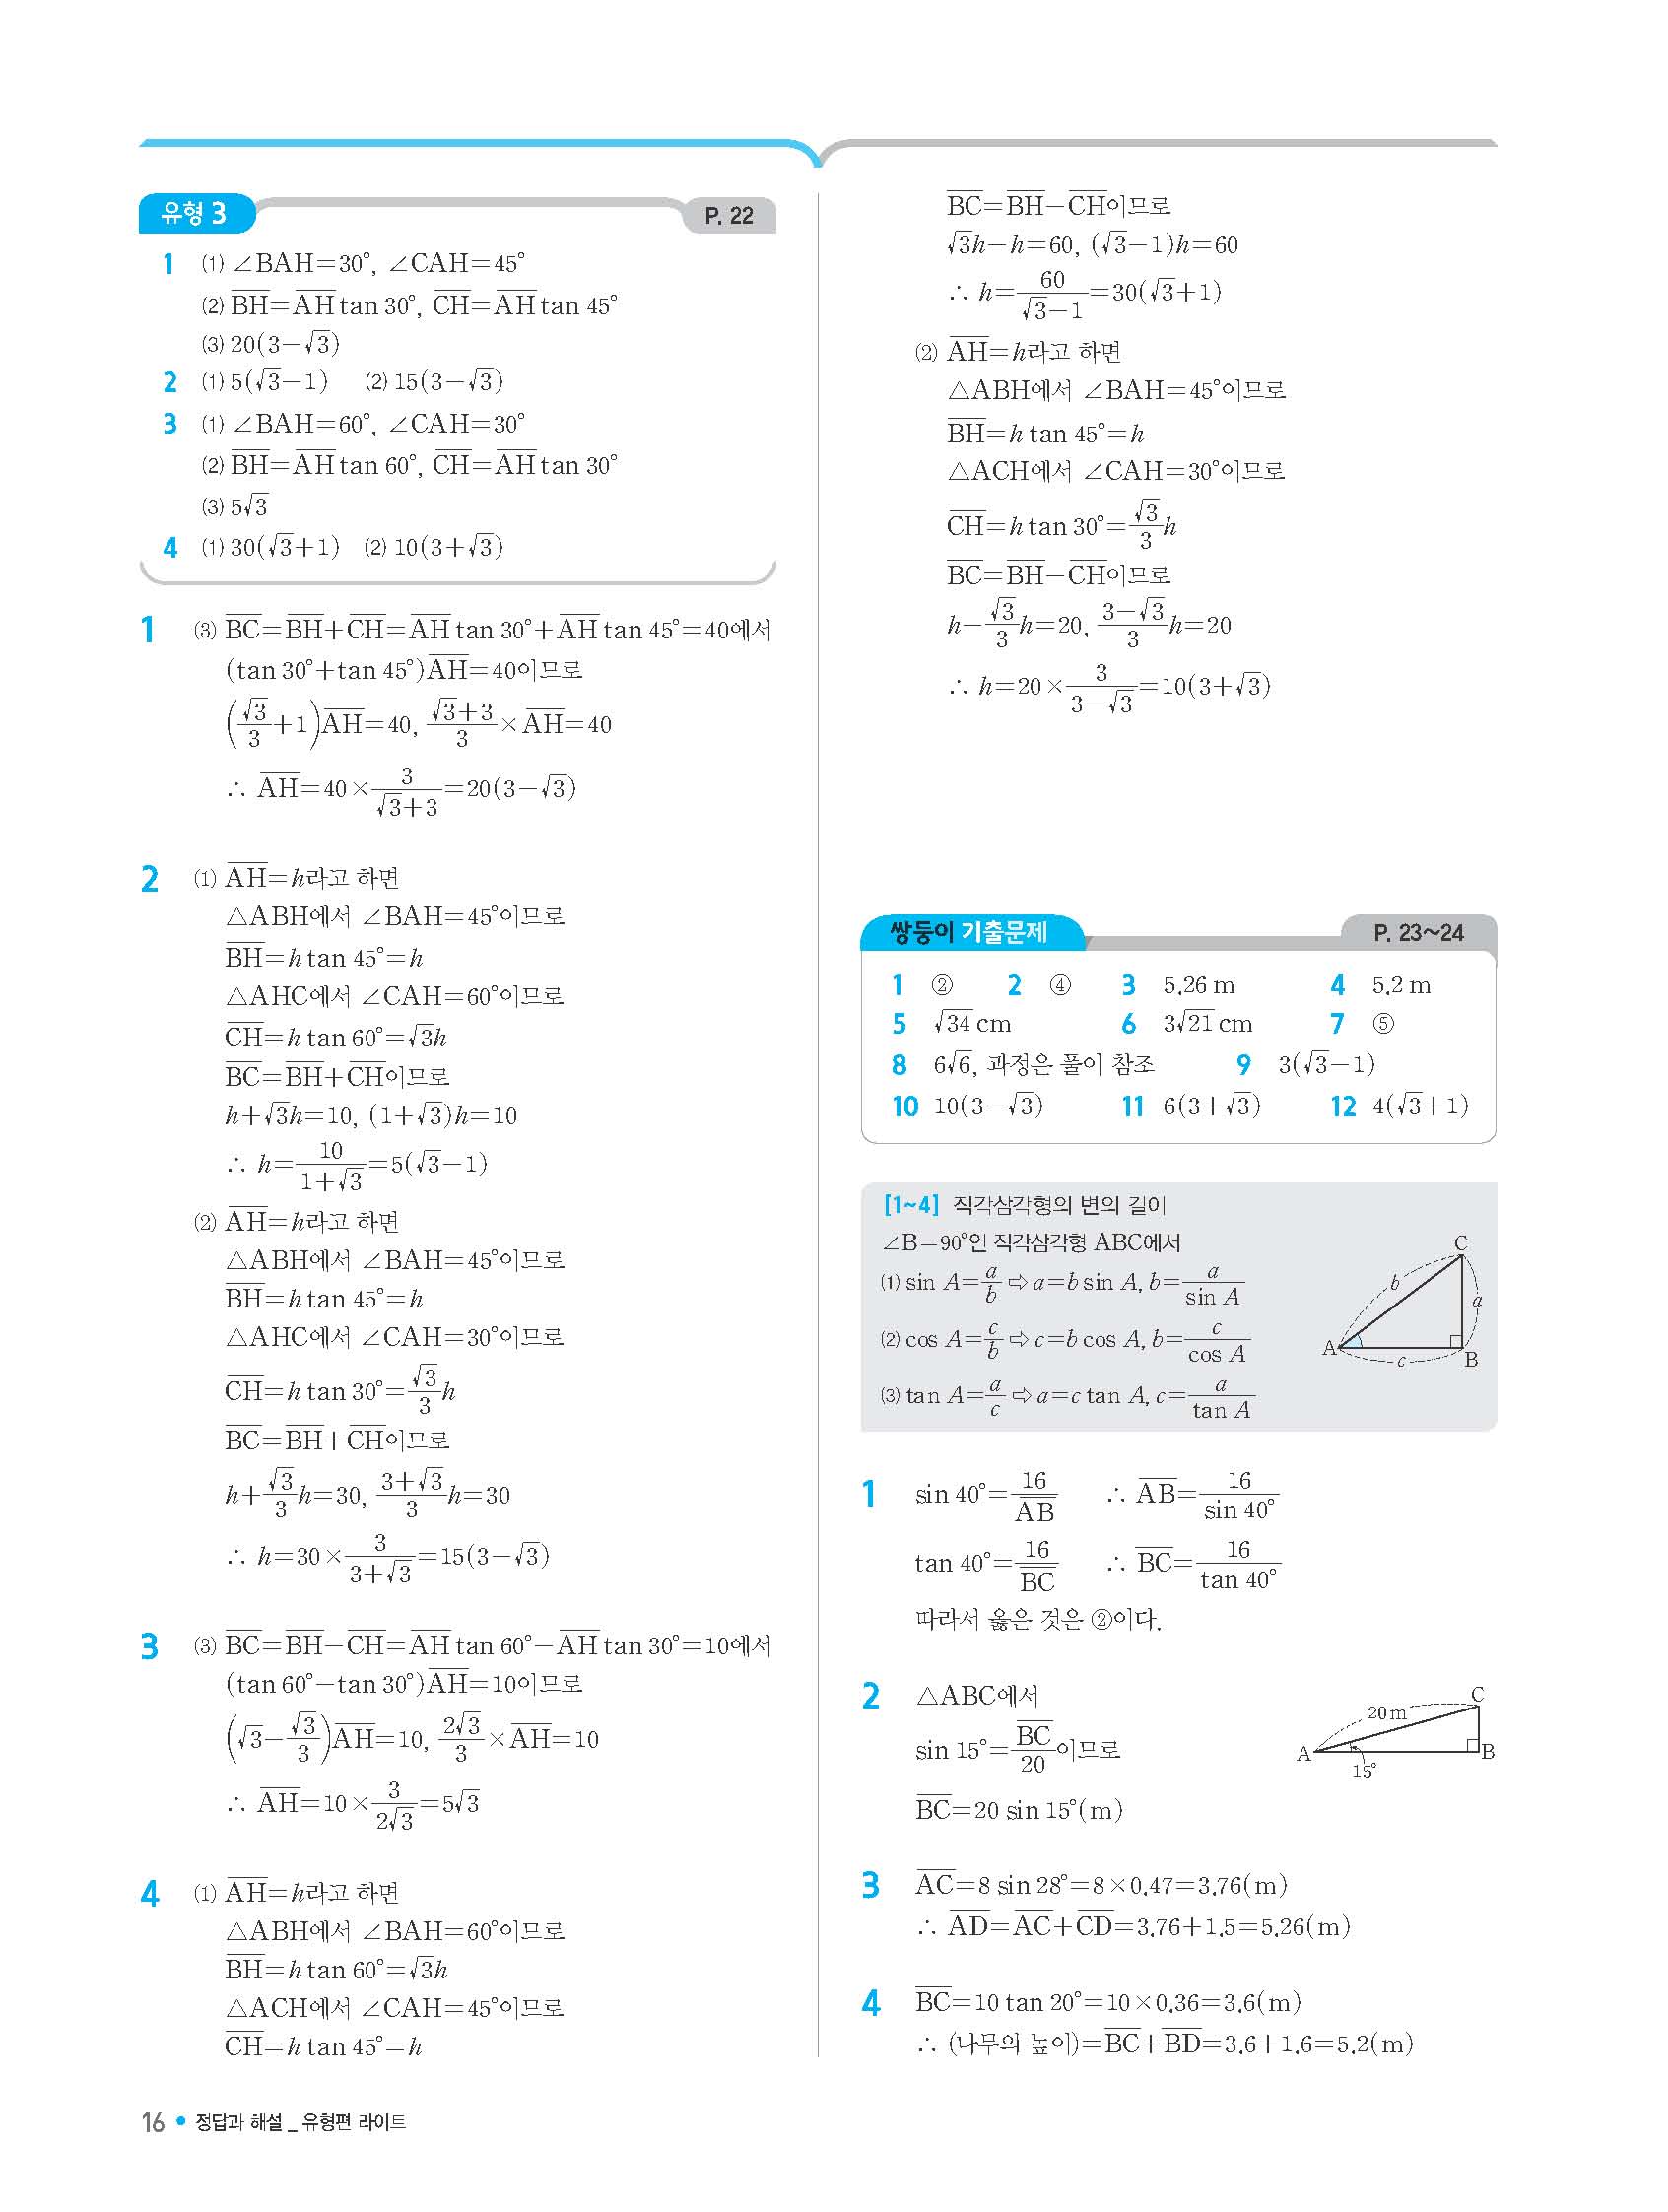 유형 3
P. 22
1 ⑴ ∠BAH=30°, ∠CAH=45°
⑵ B̅H̅=A̅H̅ tan 30°, C̅H̅=A̅H̅ tan 45°
⑶ 20(3-√3)
2 ⑴ 5(√3-1) ⑵ 15(3-√3)
3 ⑴ ∠BAH=60°, ∠CAH=30°
⑵ B̅H̅=A̅H̅ tan 60°, C̅H̅=A̅H̅ tan 30°
⑶ 5√3
4 ⑴ 30(√3+1) ⑵ 10(3+√3)
1 ⑶ B̅C̅=B̅H̅+C̅H̅=A̅H̅ tan 30°+A̅H̅ tan 45°=40에서
(tan 30°+tan 45°)A̅H̅=40이므로
(√3/3+1)A̅H̅=40, (√3+3)/3×A̅H̅=40
∴ A̅H̅=40×3/(√3+3)=20(3-√3)
2 ⑴ A̅H̅=h라고 하면
△ABH에서 ∠BAH=45°이므로
B̅H̅=h tan 45°=h
△AHC에서 ∠CAH=60°이므로
C̅H̅=h tan 60°=√3h
B̅C̅=B̅H̅+C̅H̅이므로
h+√3h=10, (1+√3)h=10
∴ h=10/(1+√3)=5(√3-1)
⑵ A̅H̅=h라고 하면
△ABH에서 ∠BAH=45°이므로
B̅H̅=h tan 45°=h
△AHC에서 ∠CAH=30°이므로
C̅H̅=h tan 30°=√3/3 h
B̅C̅=B̅H̅+C̅H̅이므로
h+√3/3 h=30, (3+√3)/3 h=30
∴ h=30×3/(3+√3)=15(3-√3)
3 ⑶ B̅C̅=B̅H̅-C̅H̅=A̅H̅ tan 60°-A̅H̅ tan 30°=10에서
(tan 60°-tan 30°)A̅H̅=10이므로
(√3-√3/3)A̅H̅=10, 2√3/3×A̅H̅=10
∴ A̅H̅=10×3/(2√3)=5√3
4 ⑴ A̅H̅=h라고 하면
△ABH에서 ∠BAH=60°이므로
B̅H̅=h tan 60°=√3h
△ACH에서 ∠CAH=45°이므로
C̅H̅=h tan 45°=h
B̅C̅=B̅H̅-C̅H̅이므로
√3h-h=60, (√3-1)h=60
∴ h=60/(√3-1)=30(√3+1)
⑵ A̅H̅=h라고 하면
△ABH에서 ∠BAH=45°이므로
B̅H̅=h tan 45°=h
△ACH에서 ∠CAH=30°이므로
C̅H̅=h tan 30°=√3/3 h
B̅C̅=B̅H̅-C̅H̅이므로
h-√3/3 h=20, (3-√3)/3 h=20
∴ h=20×3/(3-√3)=10(3+√3)
쌍둥이 기출문제
P. 23~24
1 ② 2 ④ 3 5.26 m 4 5.2 m
5 √34 cm 6 3√21 cm 7 ⑤
8 6√6, 과정은 풀이 참조 9 3(√3-1)
10 10(3-√3) 11 6(3+√3) 12 4(√3+1)
[1~4] 직각삼각형의 변의 길이
∠B=90°인 직각삼각형 ABC에서
⑴ sin A=a/b ⇨ a=b sin A, b=a/sin A
⑵ cos A=c/b ⇨ c=b cos A, b=c/cos A
⑶ tan A=a/c ⇨ a=c tan A, c=a/tan A
C
b
a
A
c
B
1 sin 40°=16/A̅B̅ ∴ A̅B̅=16/sin 40°
tan 40°=16/B̅C̅ ∴ B̅C̅=16/tan 40°
따라서 옳은 것은 ②이다.
2 △ABC에서
sin 15°=B̅C̅/20이므로
B̅C̅=20 sin 15°(m)
C
20 m
A
B
15°
3 A̅C̅=8 sin 28°=8×0.47=3.76(m)
∴ A̅D̅=A̅C̅+C̅D̅=3.76+1.5=5.26(m)
4 B̅C̅=10 tan 20°=10×0.36=3.6(m)
∴ (나무의 높이)=B̅C̅+B̅D̅=3.6+1.6=5.2(m)
16 • 정답과 해설 _ 유형편 라이트